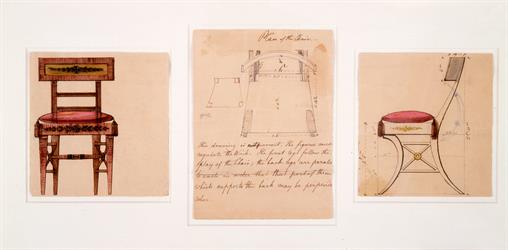 Plan of the Chair.
this drawing is not correct, the figures must
regulate the Work. The front legs follow the
splay of the Chair; the back legs are parallel
to each in order that that part of them
which supports the back may be perpendic
ular.